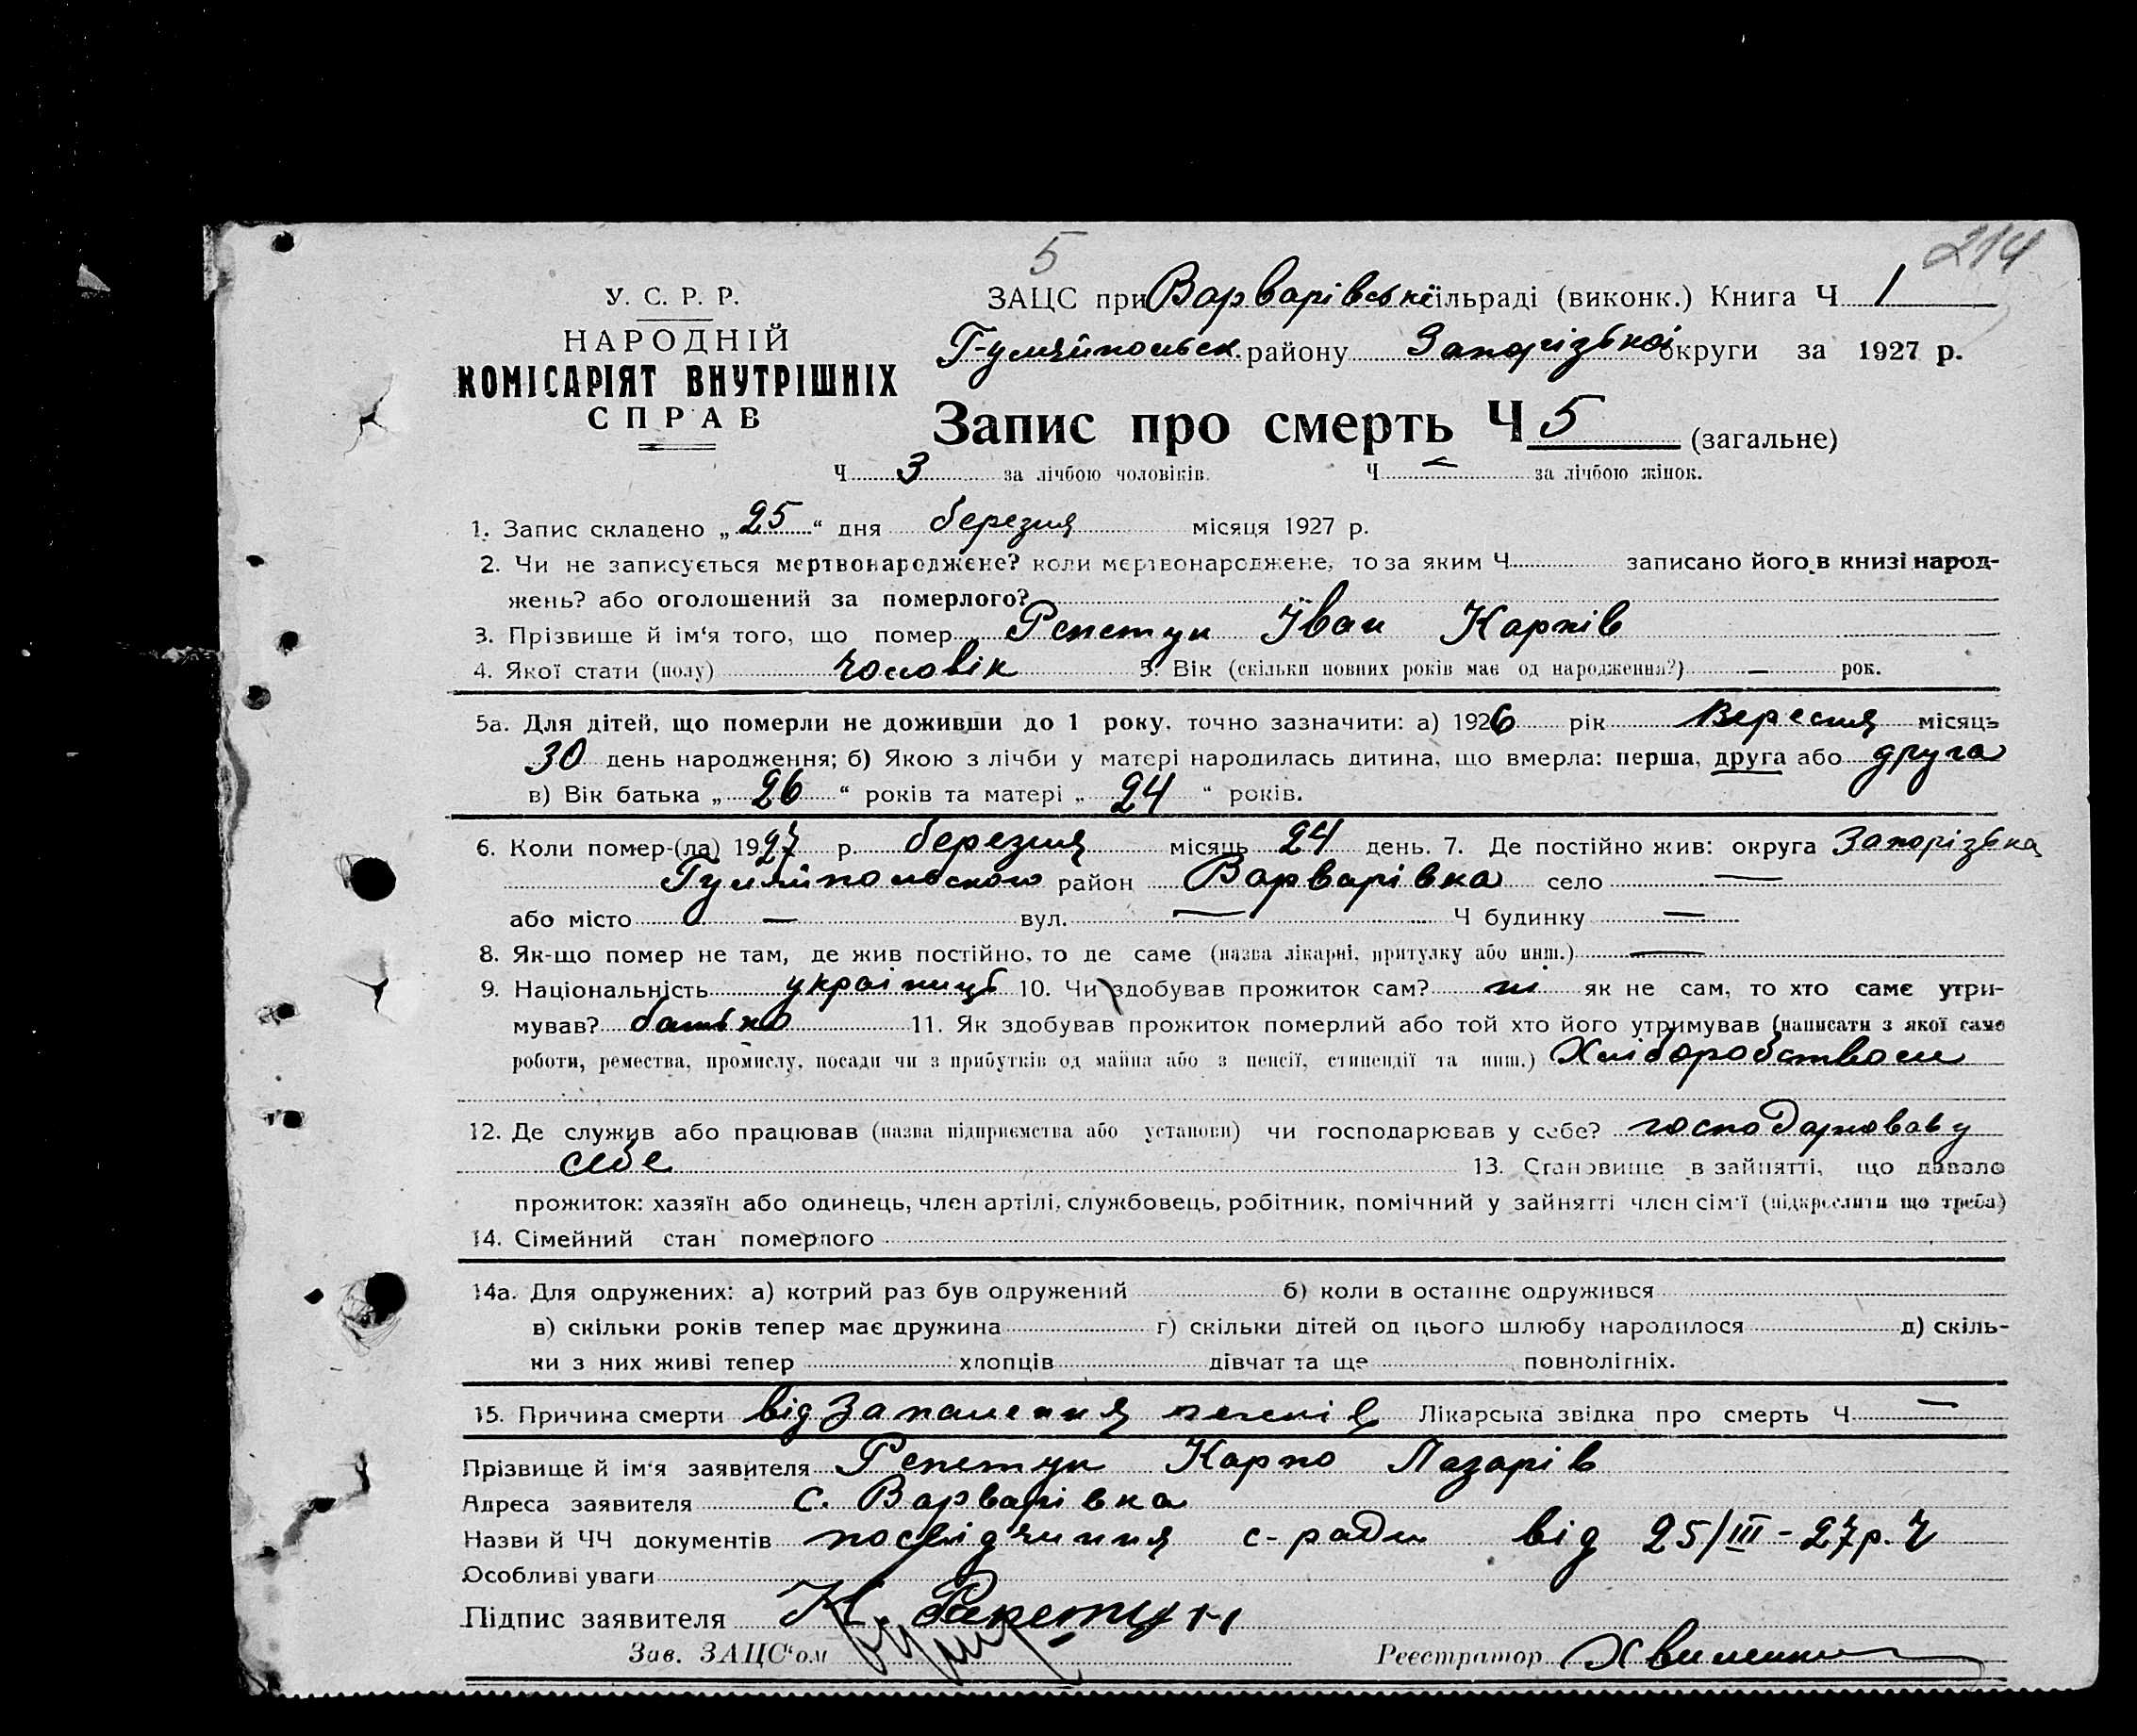 5 214
У. С. Р. Р.
НАРОДНІЙ
КОМІСАРІЯТ ВНУТРІШНІХ
СПРАВ
ЗАЦС при Варварівській сільраді (виконк.) Книга Ч 1
Гуляйпольск. району Запорізької округи за 1927 р.
Запис про смерть Ч 5 (загальне)
Ч 3 за лічбою чоловіків. Ч — за лічбою жінок.
1. Запис складено „25“ дня березня місяця 1927 р.
2. Чи не записується мертвонароджене? коли мертвонароджене, то за яким Ч записано його в книзі народ-
жень? або оголошений за померлого?
3. Прізвище й ім‘я того, що помер Репетун Іван Карпів
4. Якої стати (полу) чоловік 5. Вік (скільки повних років має од народження?) — рок.
5а. Для дітей, що померли не доживши до 1 року, точно зазначити: а) 1926 рік Вересня місяць
30 день народження; б) Якою з лічби у матері народилась дитина, що вмерла: перша, друга або друга
в) Вік батька „26“ років та матері „24“ років.
6. Коли помер-(ла) 1927 р. березня місяць 24 день. 7. Де постійно жив: округа Запорізька
Гуляйпольского район Варварівка село —
або місто — вул. — Ч будинку —
8. Як-що помер не там, де жив постійно, то де саме (назва лікарні, притулку або инш.) —
9. Національність украінець 10. Чи здобував прожиток сам? ні як не сам, то хто саме утри-
мував? батько 11. Як здобував прожиток померлий або той хто його утримував (написати з якої саме
роботи, ремества, промислу, посади чи з прибутків од майна або з пенсії, стипендії та инш.) Хліборобством
12. Де служив або працював (назва підприємства або установи) чи господарював у себе? господарював у
себе 13. Становище в зайнятті, що давало
прожиток: хазяїн або одинець, член артілі, службовець, робітник, помічний у зайнятті член сім‘ї (підкреслити що треба)
14. Сімейний стан померлого
14а. Для одружених: а) котрий раз був одружений б) коли в останнє одружився
в) скільки років тепер має дружина г) скільки дітей од цього шлюбу народилося д) скіль-
ки з них живі тепер хлопців дівчат та ще повнолітніх.
15. Причина смерти від Запалення легенів Лікарська звідка про смерть Ч —
Прізвище й ім‘я заявителя Репетун Карпо Лазарів
Адреса заявителя с. Варварівка
Назви й ЧЧ документів посвідчиння с-ради від 25/III-27р. Ч
Особливі уваги
Підпис заявителя К. Репетун
Зав. ЗАЦС‘ом
Реєстратор